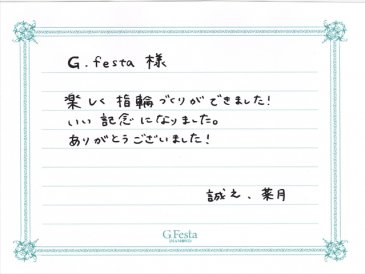 G.festa 様
楽しく指輪づくりができました!
いい記念になりました。
ありがとうございました!
誠え、葉月
G.Festa
DIAMOND